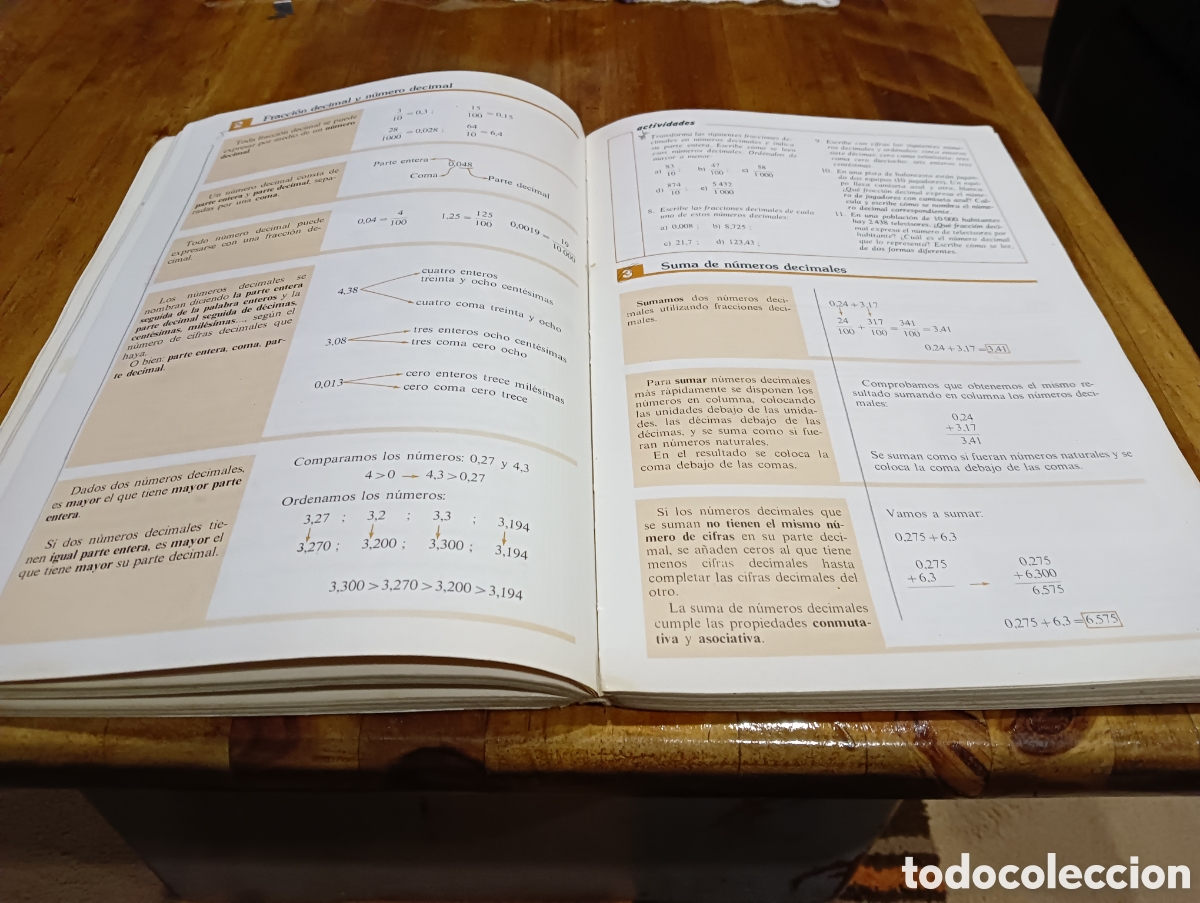 2 Fracción decimal y número decimal
Toda fracción decimal se puede
expresar por medio de un número
decimal.
3/10 = 0,3 ; 15/100 = 0,15
28/1000 = 0,028 ; 64/10 = 6,4
Un número decimal consta de
parte entera y parte decimal, sepa-
radas por una coma.
Parte entera
0,048
Coma
Parte decimal
Todo número decimal puede
expresarse con una fracción de-
cimal.
0,04 = 4/100 1,25 = 125/100 0,0019 = 19/10 000
Los números decimales se
nombran diciendo la parte entera
seguida de la palabra enteros y la
parte decimal seguida de décimas,
centésimas, milésimas..., según el
número de cifras decimales que
haya.
O bien: parte entera, coma, par-
te decimal.
4,38
cuatro enteros
treinta y ocho centésimas
cuatro coma treinta y ocho
3,08
tres enteros ocho centésimas
tres coma cero ocho
0,013
cero enteros trece milésimas
cero coma cero trece
Dados dos números decimales,
es mayor el que tiene mayor parte
entera.
Si dos números decimales tie-
nen igual parte entera, es mayor el
que tiene mayor su parte decimal.
Comparamos los números: 0,27 y 4,3
4 > 0 → 4,3 > 0,27
Ordenamos los números:
3,27 ; 3,2 ; 3,3 ; 3,194
3,270 ; 3,200 ; 3,300 ; 3,194
3,300 > 3,270 > 3,200 > 3,194
actividades
Transforma las siguientes fracciones de-
cimales en números decimales y indica
su parte entera. Escribe cómo se leen
esos números decimales. Ordénalos de
mayor a menor.
a) 83/10 b) 47/100 c) 58/1 000
d) 874/10 e) 5 432/1 000
8. Escribe las fracciones decimales de cada
uno de estos números decimales:
a) 0,008 ; b) 8,725 ;
c) 21,7 ; d) 123,43 ;
9. Escribe con cifras los siguientes núme-
ros decimales y ordénalos: cinco enteros
siete décimas; cero coma telecientos; tres
coma cero dieciocho; seis enteros seis
centésimas.
10. En una pista de baloncesto están jugan-
do dos equipos (10 jugadores). Un equi-
po lleva camiseta azul y otro, blanca.
¿Qué fracción decimal expresa el núme-
ro de jugadores con camiseta azul? Cal-
cula y escribe cómo se nombra el núme-
ro decimal correspondiente.
11. En una población de 10 000 habitantes
hay 2 438 televisores. ¿Qué fracción deci-
mal expresa el número de televisores por
habitante? ¿Cuál es el número decimal
que lo representa? Escribe cómo se lee,
de dos formas diferentes.
3 Suma de números decimales
Sumamos dos números deci-
males utilizando fracciones deci-
males.
0,24 + 3,17
24/100 + 317/100 = 341/100 = 3,41
0,24 + 3,17 = 3,41
Para sumar números decimales
más rápidamente se disponen los
números en columna, colocando
las unidades debajo de las unida-
des, las décimas debajo de las
décimas, y se suma como si fue-
ran números naturales.
En el resultado se coloca la
coma debajo de las comas.
Comprobamos que obtenemos el mismo re-
sultado sumando en columna los números deci-
males:
0,24
+ 3,17
3,41
Se suman como si fueran números naturales y se
coloca la coma debajo de las comas.
Si los números decimales que
se suman no tienen el mismo nú-
mero de cifras en su parte deci-
mal, se añaden ceros al que tiene
menos cifras decimales hasta
completar las cifras decimales del
otro.
La suma de números decimales
cumple las propiedades conmuta-
tiva y asociativa.
Vamos a sumar:
0,275 + 6,3
0,275 → 0,275
+ 6,3 + 6,300
6,575
0,275 + 6,3 = 6,575
todocoleccion